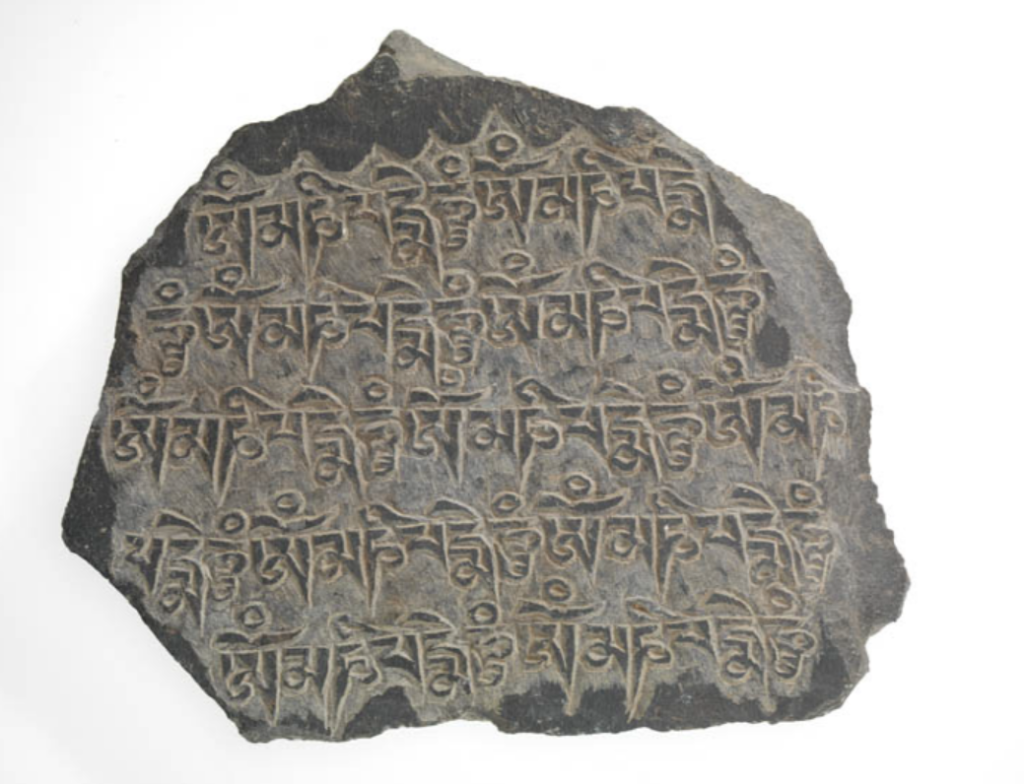 ཨོཾམཎིཔདྨེཧཱུཾཨོཾམཎིཔདྨེ
ཧཱུཾཨོཾམཎིཔདྨེཧཱུཾཨོཾམཎིཔདྨེཧཱུཾ
ཨོཾམཎིཔདྨེཧཱུཾཨོཾམཎིཔདྨེཧཱུཾཨོཾམཎི
པདྨེཧཱུཾཨོཾམཎིཔདྨེཧཱུཾཨོཾམཎིཔདྨེཧཱུཾ
ཨོཾམཎིཔདྨེཧཱུཾཨོཾམཎིཔདྨེཧཱུཾ